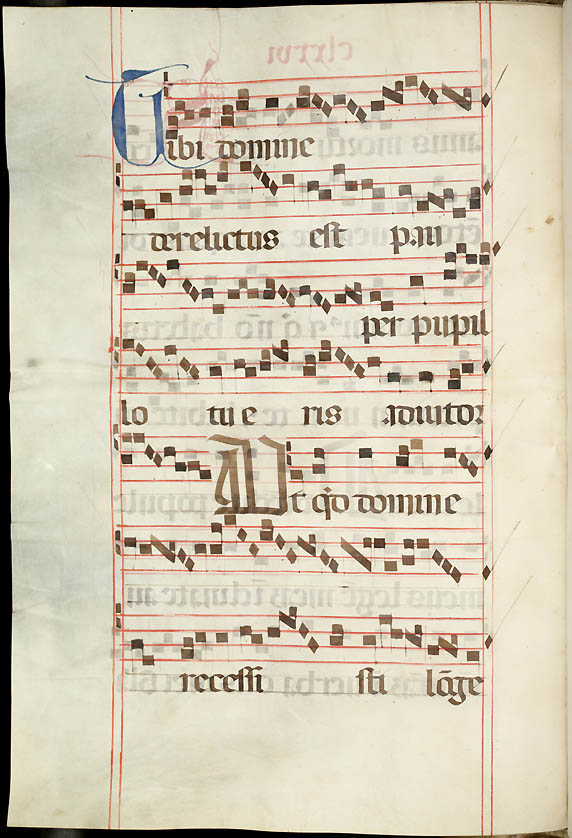 Tibi domine
derelictus est pau
per pupil
lo tu e ris adiutor
Ut qd domine
recessi sti lōge